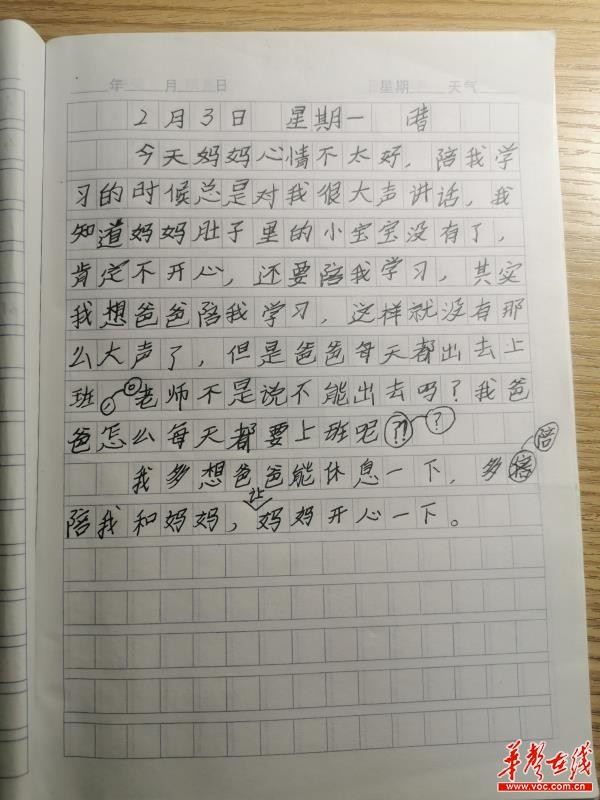 年 月 日 星期 天气
2月3日 星期一 晴
今天妈妈心情不太好，陪我学
习的时候总是对我很大声讲话，我
知道妈妈肚子里的小宝宝没有了，
肯定不开心，还要陪我学习，其实
我想爸爸陪我学习，这样就没有那
么大声了，但是爸爸每天都出去上
班。老师不是说不能出去吗？我爸
爸怎么每天都要上班呢？？ ？
我多想爸爸能休息一下，多陪
陪我和妈妈，让妈妈开心一下。
华声在线
www.voc.com.cn